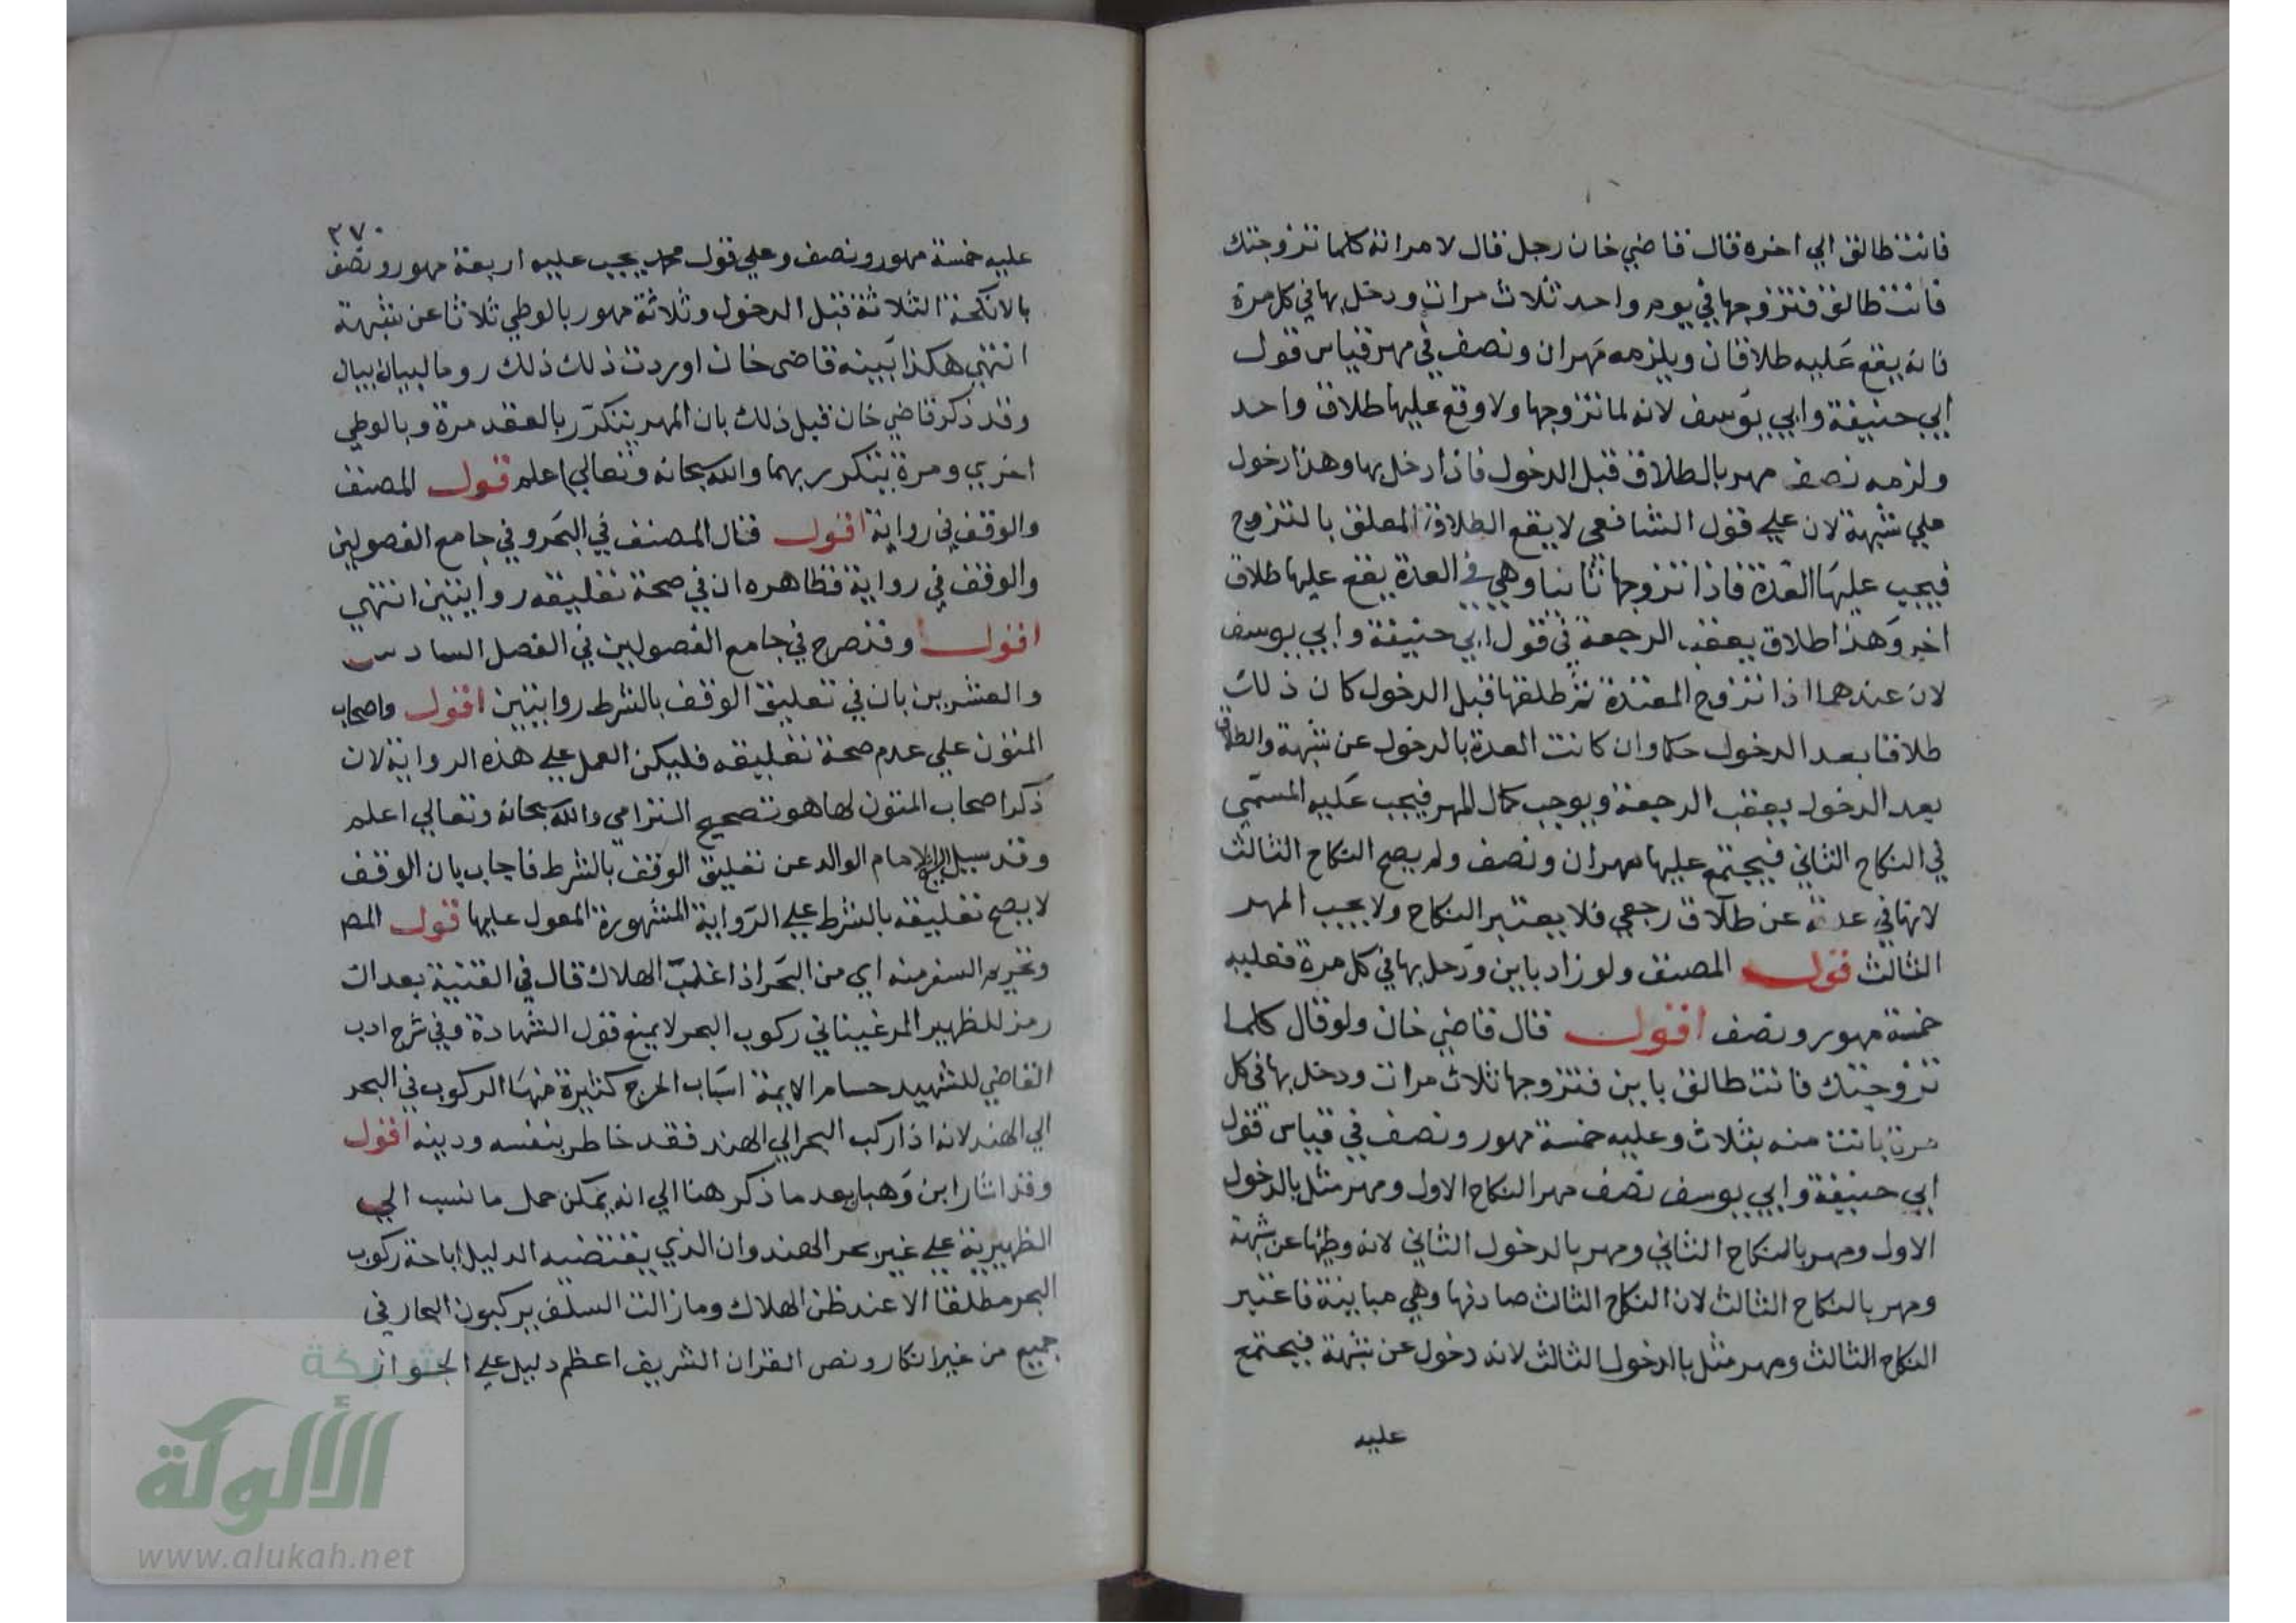 فانت طالق الي اخره قال قاضي خان رجل قال لامراته كلما تزوجتك
فانت طالق فتزوجها في يوم واحد ثلاث مرات ودخل بها في كل مرة
فانه يقع عليه طلاقان ويلزمه مهران ونصف في مهر قياس قول
ابي حنيفة وابي يوسف لانه لما تزوجها ولا وقع عليها طلاق واحد
ولزمه نصف مهر بالطلاق قبل الدخول فاذا دخل بها وهذا دخول
علي شبهة لان علي قول الشافعى لا يقع الطلاق المعلق بالتزوج
فيجب عليها العدة فاذا تزوجها ثانيا وهي في العدة يقع عليها طلاق
اخر وهذا طلاق يعقب الرجعة في قول ابي حنيفة وابي يوسف
لان عندهما اذا تزوج المعتدة ثم طلقها قبل الدخول كان ذلك
طلاقا بعد الدخول حكما وان كانت العدة بالدخول عن شبهة والطلاق
بعد الدخول يعقب الرجعة ويوجب كمال المهر فيجب عليه المسمى
في النكاح الثاني فيجتمع عليها مهران ونصف ولم يصح النكاح الثالث
لانها في عدته عن طلاق رجعي فلا يعتبر النكاح ولا يجب المهر
الثالث قول المصنف ولو زاد باين ودخل بها في كل مرة فعليه
خمسة مهور ونصف اقول قال قاضي خان ولو قال كلما
تزوجتك فانت طالق باين فتزوجها ثلاث مرات ودخل بها في كل
مرة بانت منه بثلاث وعليه خمسة مهور ونصف في قياس قول
ابي حنيفة وابي يوسف نصف مهر النكاح الاول ومهر مثل بالدخول
الاول ومهر بالنكاح الثاني ومهر بالدخول الثاني لانه وطئها عن شبهة
ومهر بالنكاح الثالث لان النكاح الثالث صادفها وهي مباينة فاعتبر
النكاح الثالث ومهر مثل بالدخول الثالث لانه دخول عن شبهة فيجتمع
عليه
٢٧٠
عليه خمسة مهور ونصف وعلي قول محمد يجب عليه اربعة مهور ونصف
بالانكحة الثلاثة قبل الدخول وثلاثة مهور بالوطي ثلاثا عن شبهة
انتهي هكذا بينه قاضى خان اوردت ذلك ذلك روما لبيان بيان
وقد ذكر قاضي خان قبل ذلك بان المهر يتكرر بالعقد مرة وبالوطي
اخري ومرة يتكرر بهما والله سبحانه وتعالي اعلم قول المصنف
والوقف في رواية اقول قال المصنف في البحر وفي جامع الفصولين
والوقف في رواية فظاهره ان في صحة تعليقه روايتين انتهي
اقول وقد صرح في جامع الفصولين في الفصل السادس
والعشرين بان في تعليق الوقف بالشرط روايتين اقول واصحاب
المتون علي عدم صحة تعليقه فليكن العمل علي هذه الرواية لان
ذكر اصحاب المتون لها هو تصحيح التزامي والله سبحانه وتعالي اعلم
وقد سيل الامام الوالد عن تعليق الوقف بالشرط فاجاب بان الوقف
لا يصح تعليقه بالشرط علي الرواية المشهورة المعول عليها قول المص
وتحريم السفر منه اي من البحر اذا غلب الهلاك قال في القنية بعد ان
رمز للظهير المرغيناني ركوب البحر لا يمنع قول الشهادة وفي شرح ادب
القاضي للشهيد حسام الايمة اسباب الجرح كثيرة منها الركوب في البحر
الي الهند لانه اذا ركب البحر الي الهند فقد خاطر بنفسه ودينه اقول
وقد اشار ابن وهبان بعد ما ذكر هنا الي انه يمكن حمل ما نسب الي
الظهيرية علي غير بحر الهند وان الذي يقتضيه الدليل اباحة ركوب
البحر مطلقا الا عند ظن الهلاك وما زالت السلف يركبون البحار في
جميع من غير انكار ونص القران الشريف اعظم دليل علي الجواز
شبكة
الألوكة
www.alukah.net